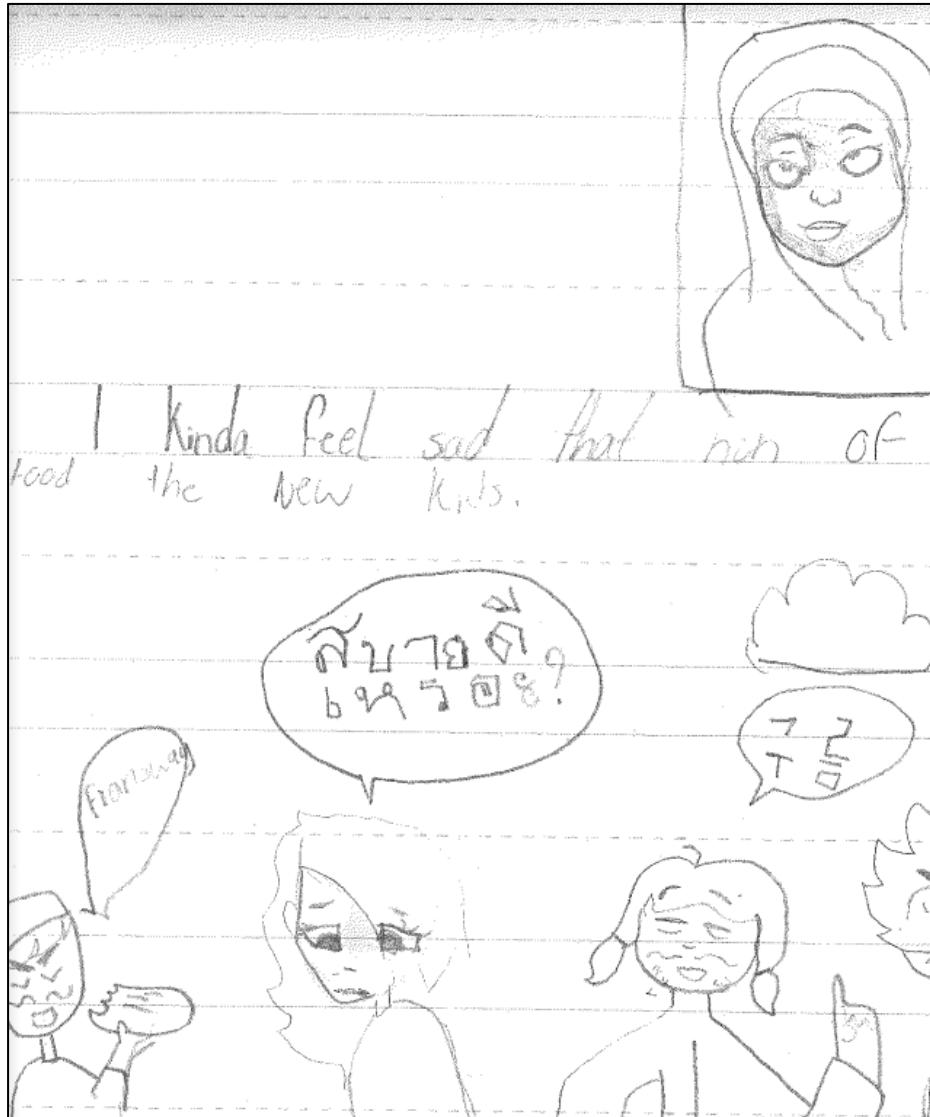 I kinda feel sad that nun of
tood the new kids.
สบายดี
เหรอะ?
구름